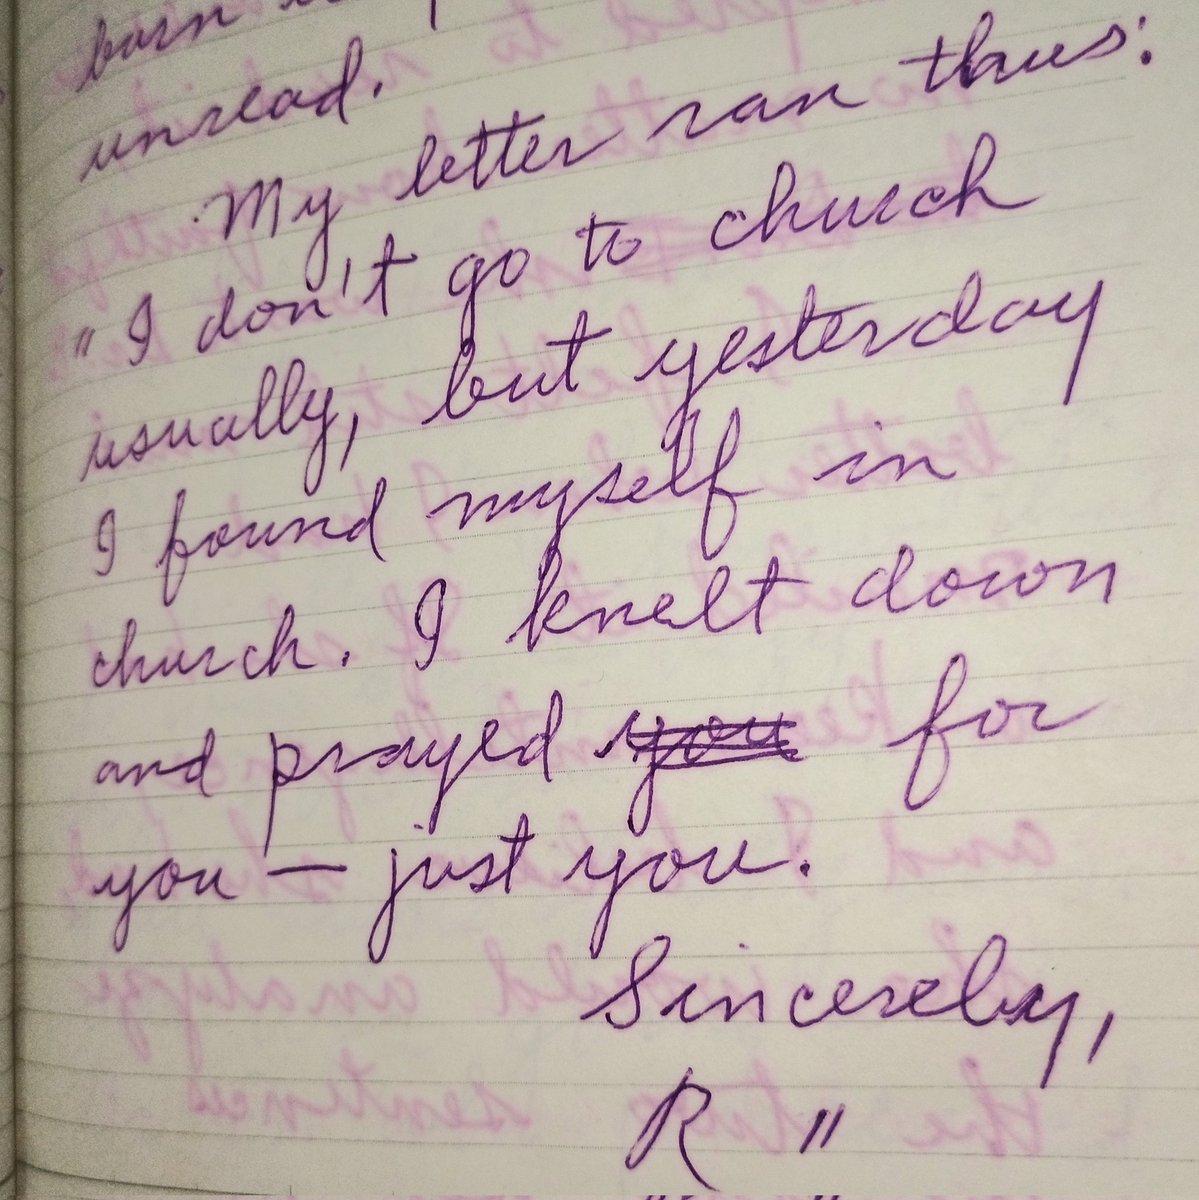 born
unread.
My letter ran thus:
"I don't go to church
usually, but yesterday
I found myself in
church. I knelt down
and prayed you for
you — just you.
Sincerely,
R"